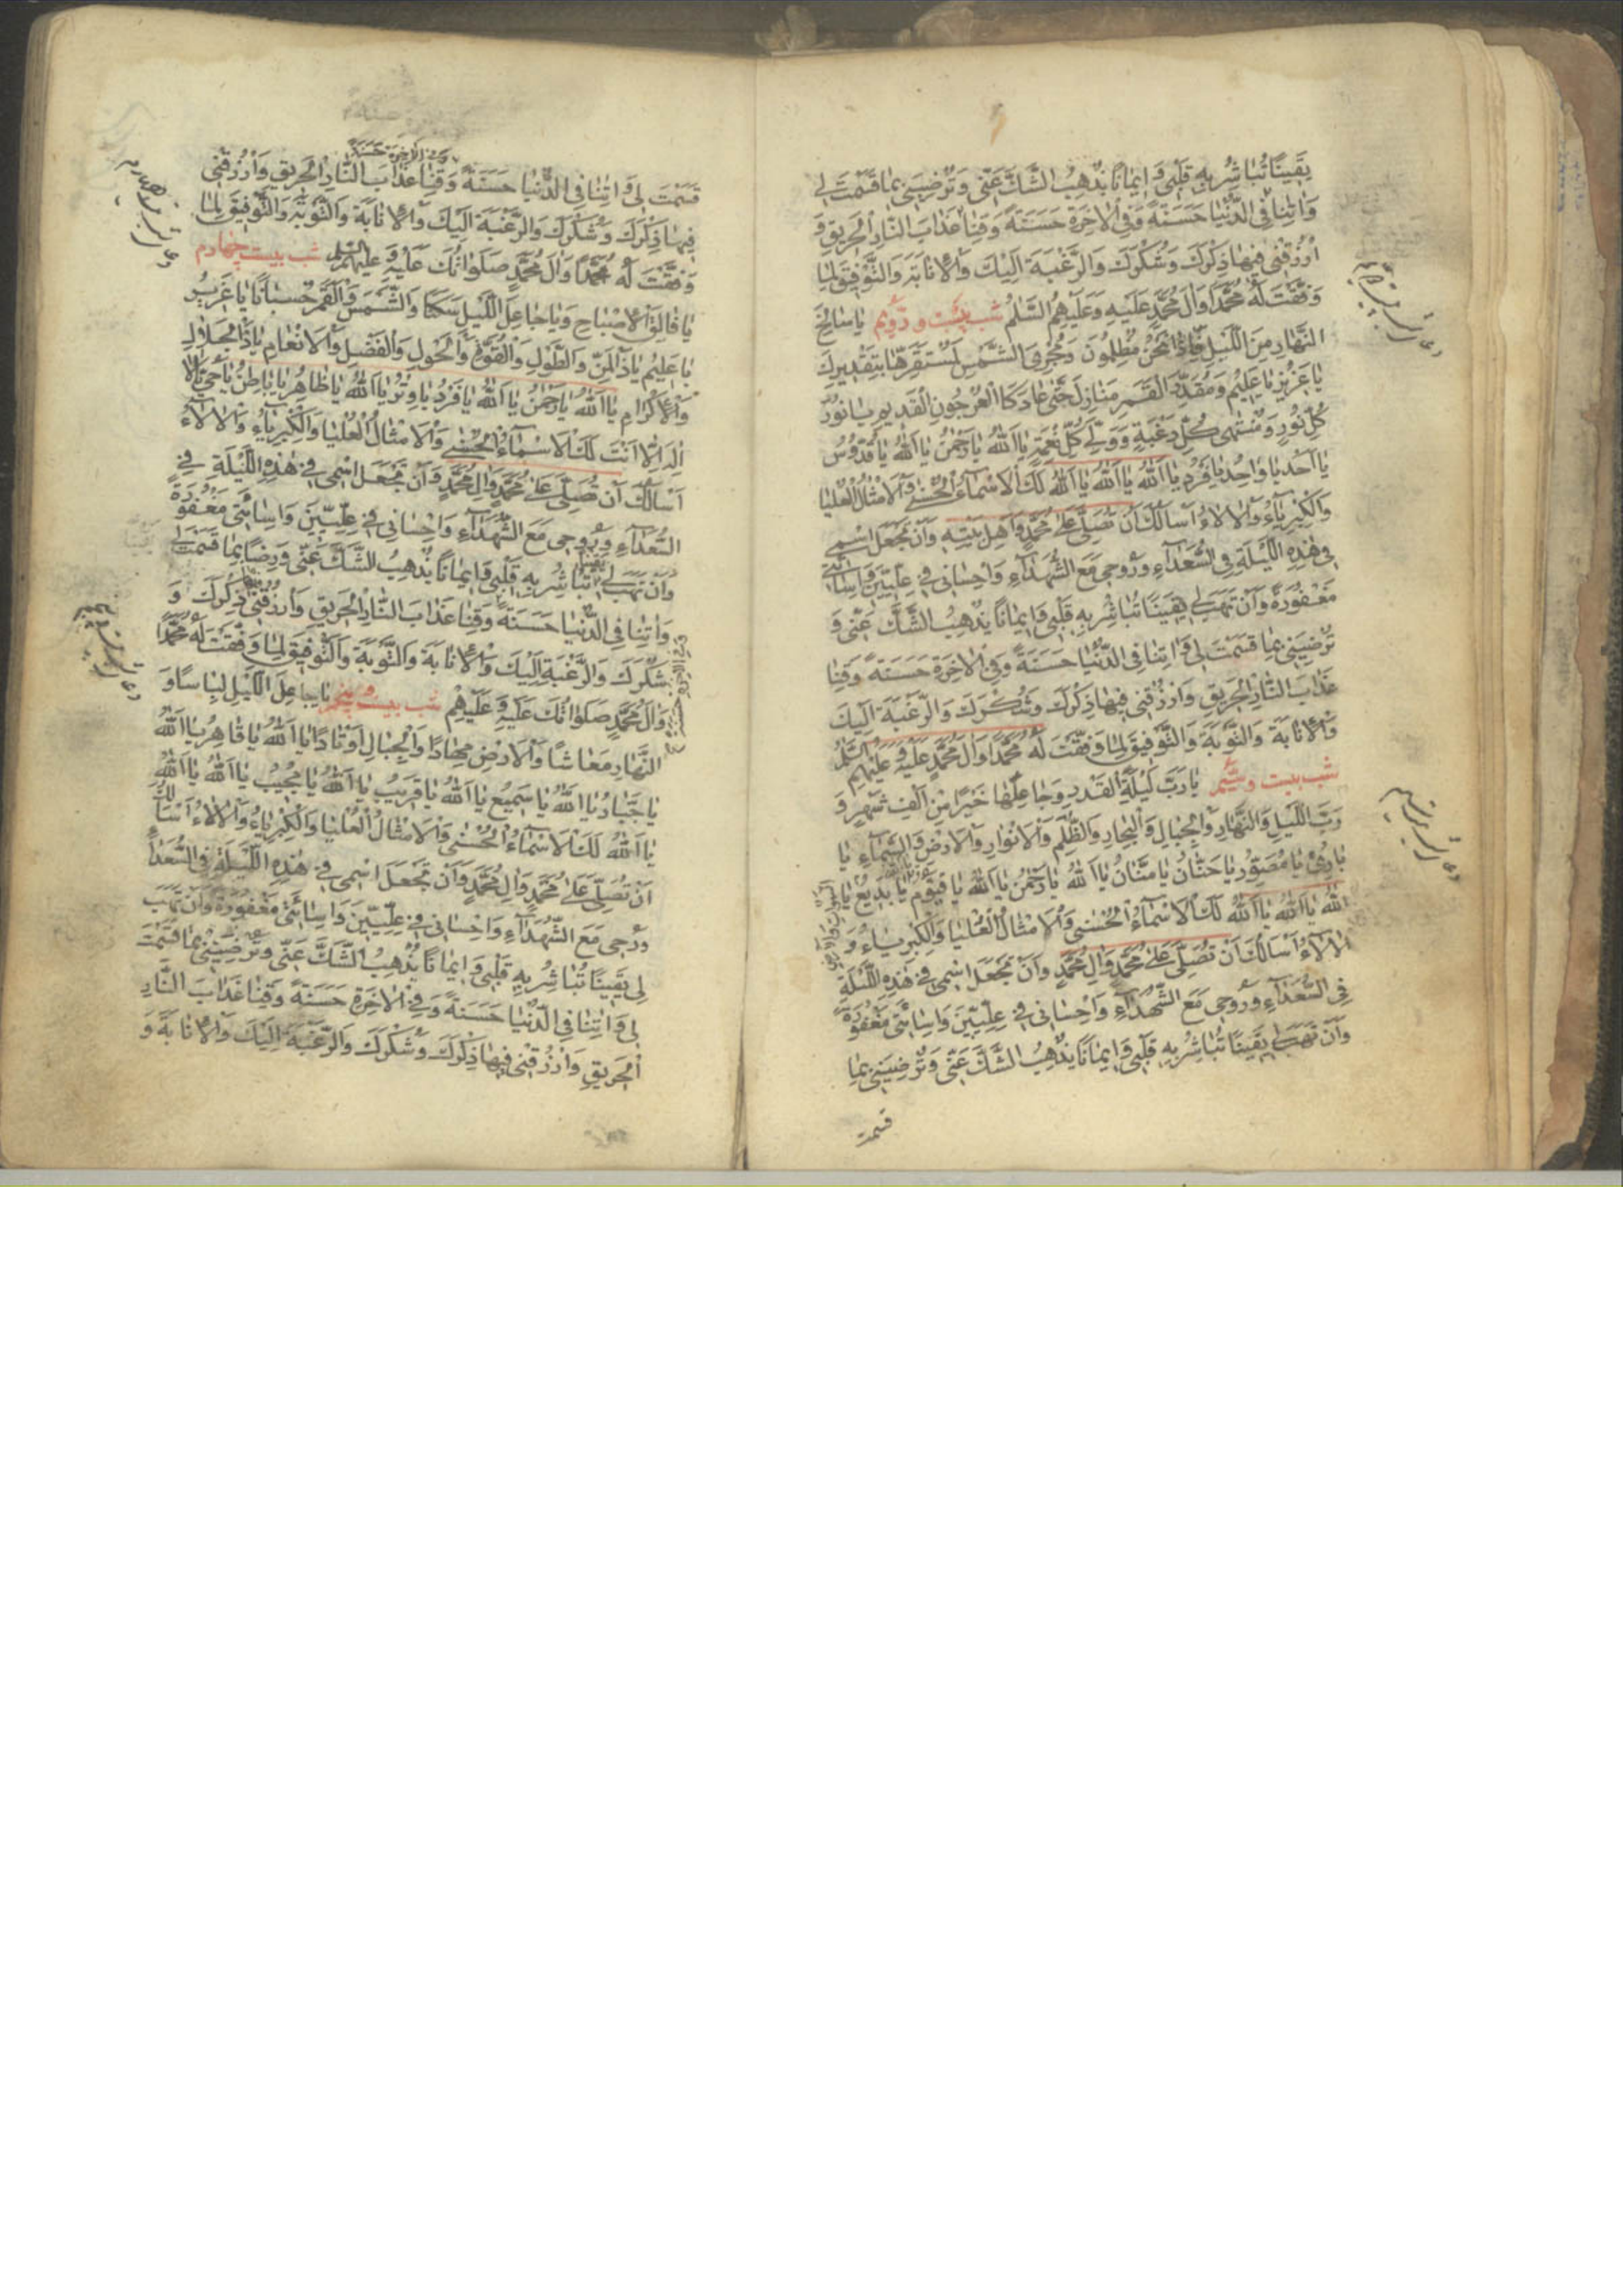 يَقينًا تُباشِرُ بِهِ قَلْبي وَ ايمانًا يُذْهِبُ الشَّكَّ عَنّي وَ تُرْضِيَني بِما قَسَمْتَ لي
وَ اتِنا فِي الدُّنْيا حَسَنَةً وَ فِي الْاخِرَةِ حَسَنَةً وَ قِنا عَذابَ النّارِ الْحَريقِ وَ
ارْزُقْني فيها ذِكْرَكَ وَ شُكْرَكَ وَ الرَّغْبَةَ اِلَيْكَ وَ الْاِنابَةَ وَ التَّوْفيقَ لِما
وَفَّقْتَ لَهُ مُحَمَّدًا وَ الَ مُحَمَّدٍ عَلَيْهِ وَ عَلَيْهِمُ السَّلمُ شب بيست و دويم يا سالِخَ
النَّهارِ مِنَ اللَّيْلِ فَاِذا نَحْنُ مُظْلِمُونَ وَ مُجْرِيَ الشَّمْسِ لِمُسْتَقَرِّها بِتَقْديرِكَ
يا عَزيزُ يا عَليمُ وَ مُقَدِّرَ الْقَمَرِ مَنازِلَ حَتّى عادَ كَالْعُرْجُونِ الْقَديمِ يا نُورَ
كُلِّ نُورٍ وَ مُنْتَهى كُلِّ رَغْبَةٍ وَ وَلِيَّ كُلِّ نِعْمَةٍ يا اَللهُ يا رَحْمنُ يا اَللهُ يا قُدُّوسُ
يا اَحَدُ يا واحِدُ يا فَرْدُ يا اَللهُ يا اَللهُ يا اَللهُ لَكَ الْاَسْماءُ الْحُسْنى وَ الْاَمْثالُ الْعُلْيا
وَ الْكِبْرِياءُ وَ الْالاءُ اَسْاَلُكَ اَنْ تُصَلِّيَ عَلى مُحَمَّدٍ وَ اَهْلِ بَيْتِهِ وَ اَنْ تَجْعَلَ اسْمي
في هذِهِ اللَّيْلَةِ فِي السُّعَداءِ وَ رُوحي مَعَ الشُّهَداءِ وَ اِحْساني في عِلِّيّينَ وَ اِسائَتي
مَغْفُورَةً وَ اَنْ تَهَبَ لي يَقينًا تُباشِرُ بِهِ قَلْبي وَ ايمانًا يُذْهِبُ الشَّكَّ عَنّي وَ
تُرْضِيَني بِما قَسَمْتَ لي وَ اتِنا فِي الدُّنْيا حَسَنَةً وَ فِي الْاخِرَةِ حَسَنَةً وَ قِنا
عَذابَ النّارِ الْحَريقِ وَ ارْزُقْني فيها ذِكْرَكَ وَ شُكْرَكَ وَ الرَّغْبَةَ اِلَيْكَ
وَ الْاِنابَةَ وَ التَّوْبَةَ وَ التَّوْفيقَ لِما وَفَّقْتَ لَهُ مُحَمَّدًا وَ الَ مُحَمَّدٍ عَلَيْهِ وَ عَلَيْهِمُ السَّلمُ
شب بيست و سيّم يا رَبَّ لَيْلَةِ الْقَدْرِ وَ جاعِلَها خَيْرًا مِنْ اَلْفِ شَهْرٍ وَ
رَبَّ اللَّيْلِ وَ النَّهارِ وَ الْجِبالِ وَ الْبِحارِ وَ الظُّلَمِ وَ الْاَنْوارِ وَ الْاَرْضِ وَ السَّماءِ يا
بارِئُ يا مُصَوِّرُ يا حَنّانُ يا مَنّانُ يا اَللهُ يا رَحْمنُ يا اَللهُ يا قَيُّومُ يا بَديعُ يا
اَللهُ يا اَللهُ يا اَللهُ لَكَ الْاَسْماءُ الْحُسْنى وَ الْاَمْثالُ الْعُلْيا وَ الْكِبْرِياءُ وَ
الْالاءُ اَسْاَلُكَ اَنْ تُصَلِّيَ عَلى مُحَمَّدٍ وَ الِ مُحَمَّدٍ وَ اَنْ تَجْعَلَ اسْمي في هذِهِ اللَّيْلَةِ
فِي السُّعَداءِ وَ رُوحي مَعَ الشُّهَداءِ وَ اِحْساني في عِلِّيّينَ وَ اِسائَتي مَغْفُورَةً
وَ اَنْ تَهَبَ لي يَقينًا تُباشِرُ بِهِ قَلْبي وَ ايمانًا يُذْهِبُ الشَّكَّ عَنّي وَ تُرْضِيَني بِما
قسمت
وَ فِي الْاخِرَةِ حَسَنَةً
قَسَمْتَ لي وَ اتِنا فِي الدُّنْيا حَسَنَةً وَ قِنا عَذابَ النّارِ الْحَريقِ وَ ارْزُقْني
فيها ذِكْرَكَ وَ شُكْرَكَ وَ الرَّغْبَةَ اِلَيْكَ وَ الْاِنابَةَ وَ التَّوْبَةَ وَ التَّوْفيقَ لِما
وَفَّقْتَ لَهُ مُحَمَّدًا وَ الَ مُحَمَّدٍ صَلَواتُكَ عَلَيْهِ وَ عَلَيْهِمُ السَّلم شب بيست چهارم
يا فالِقَ الْاِصْباحِ وَ يا جاعِلَ اللَّيْلِ سَكَنًا وَ الشَّمْسَ وَ الْقَمَرَ حُسْبانًا يا عَزيزُ
يا عَليمُ يا ذَا الْمَنِّ وَ الطَّوْلِ وَ الْقُوَّةِ وَ الْحَوْلِ وَ الْفَضْلِ وَ الْاِنْعامِ يا ذَا الْجَلالِ
وَ الْاِكْرامِ يا اَللهُ يا رَحْمنُ يا اَللهُ يا فَرْدُ يا وِتْرُ يا اَللهُ يا ظاهِرُ يا باطِنُ يا حَيُّ لا
اِلهَ اِلّا اَنْتَ لَكَ الْاَسْماءُ الْحُسْنى وَ الْاَمْثالُ الْعُلْيا وَ الْكِبْرِياءُ وَ الْالاءُ
اَسْاَلُكَ اَنْ تُصَلِّيَ عَلى مُحَمَّدٍ وَ الِ مُحَمَّدٍ وَ اَنْ تَجْعَلَ اسْمي في هذِهِ اللَّيْلَةِ في
السُّعَداءِ وَ رُوحي مَعَ الشُّهَداءِ وَ اِحْساني في عِلِّيّينَ وَ اِسائَتي مَغْفُورَةً
وَ اَنْ تَهَبَ لي يَقينًا تُباشِرُ بِهِ قَلْبي وَ ايمانًا يُذْهِبُ الشَّكَّ عَنّي وَ رِضًا بِما قَسَمْتَ لي
وَ اتِنا فِي الدُّنْيا حَسَنَةً وَ قِنا عَذابَ النّارِ الْحَريقِ وَ ارْزُقْني ذِكْرَكَ وَ
شُكْرَكَ وَ الرَّغْبَةَ اِلَيْكَ وَ الْاِنابَةَ وَ التَّوْبَةَ وَ التَّوْفيقَ لِما وَفَّقْتَ لَهُ مُحَمَّدًا
وَ الَ مُحَمَّدٍ صَلَواتُكَ عَلَيْهِ وَ عَلَيْهِمْ شب بيست و پنجم يا جاعِلَ اللَّيْلِ لِباسًا وَ
النَّهارِ مَعاشًا وَ الْاَرْضِ مِهادًا وَ الْجِبالِ اَوْتادًا يا اَللهُ يا قاهِرُ يا اَللهُ
يا جَبّارُ يا اَللهُ يا سَميعُ يا اَللهُ يا قَريبُ يا اَللهُ يا مُجيبُ يا اَللهُ يا اَللهُ
يا اَللهُ لَكَ الْاَسْماءُ الْحُسْنى وَ الْاَمْثالُ الْعُلْيا وَ الْكِبْرِياءُ وَ الْالاءُ اَسْاَلُكَ
اَنْ تُصَلِّيَ عَلى مُحَمَّدٍ وَ الِ مُحَمَّدٍ وَ اَنْ تَجْعَلَ اسْمي في هذِهِ اللَّيْلَةِ فِي السُّعَداءِ
وَ رُوحي مَعَ الشُّهَداءِ وَ اِحْساني في عِلِّيّينَ وَ اِسائَتي مَغْفُورَةً وَ اَنْ تَهَبَ
لي يَقينًا تُباشِرُ بِهِ قَلْبي وَ ايمانًا يُذْهِبُ الشَّكَّ عَنّي وَ تُرْضِيَني بِما قَسَمْتَ
لي وَ اتِنا فِي الدُّنْيا حَسَنَةً وَ فِي الْاخِرَةِ حَسَنَةً وَ قِنا عَذابَ النّارِ
الْحَريقِ وَ ارْزُقْني فيها ذِكْرَكَ وَ شُكْرَكَ وَ الرَّغْبَةَ اِلَيْكَ وَ الْاِنابَةَ وَ